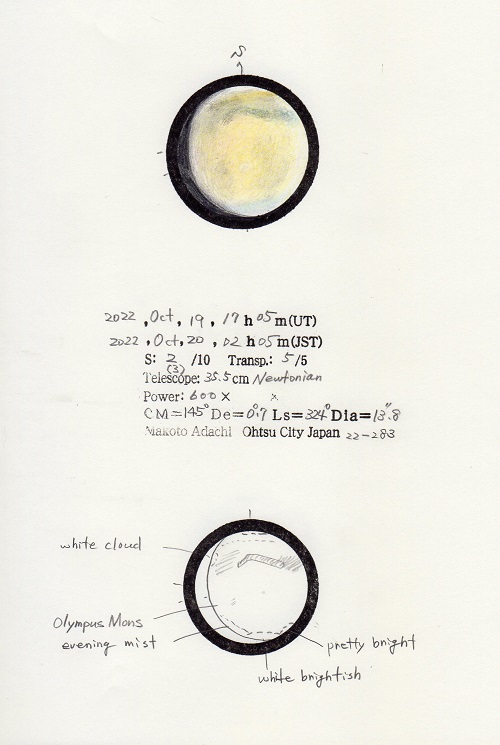 S
2022, Oct, 19, 17h 05m(UT)
2022, Oct, 20, 02h 05m(JST)
S: 2 /10 Transp.: 5/5
(3)
Telescope: 35.5cm Newtonian
Power: 600× ×
CM=145° De=0.°7 Ls=324° Dia=13."8
Makoto Adachi Ohtsu City Japan 22-283
white cloud
Olympus Mons
evening mist
pretty bright
white brightish